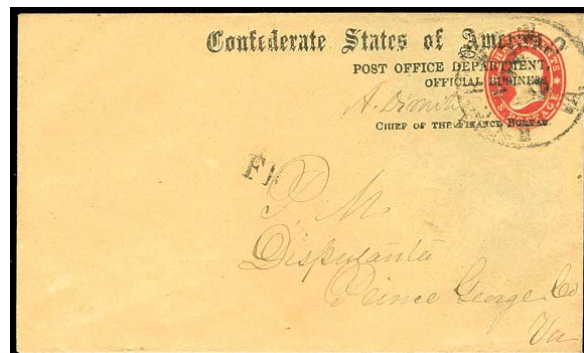 Confederate States of America,
POST OFFICE DEPARTMENT,
OFFICIAL BUSINESS
A. Dimitry
CHIEF OF THE FINANCE BUREAU.
P. M.
Disputanta
Prince George Co
Va